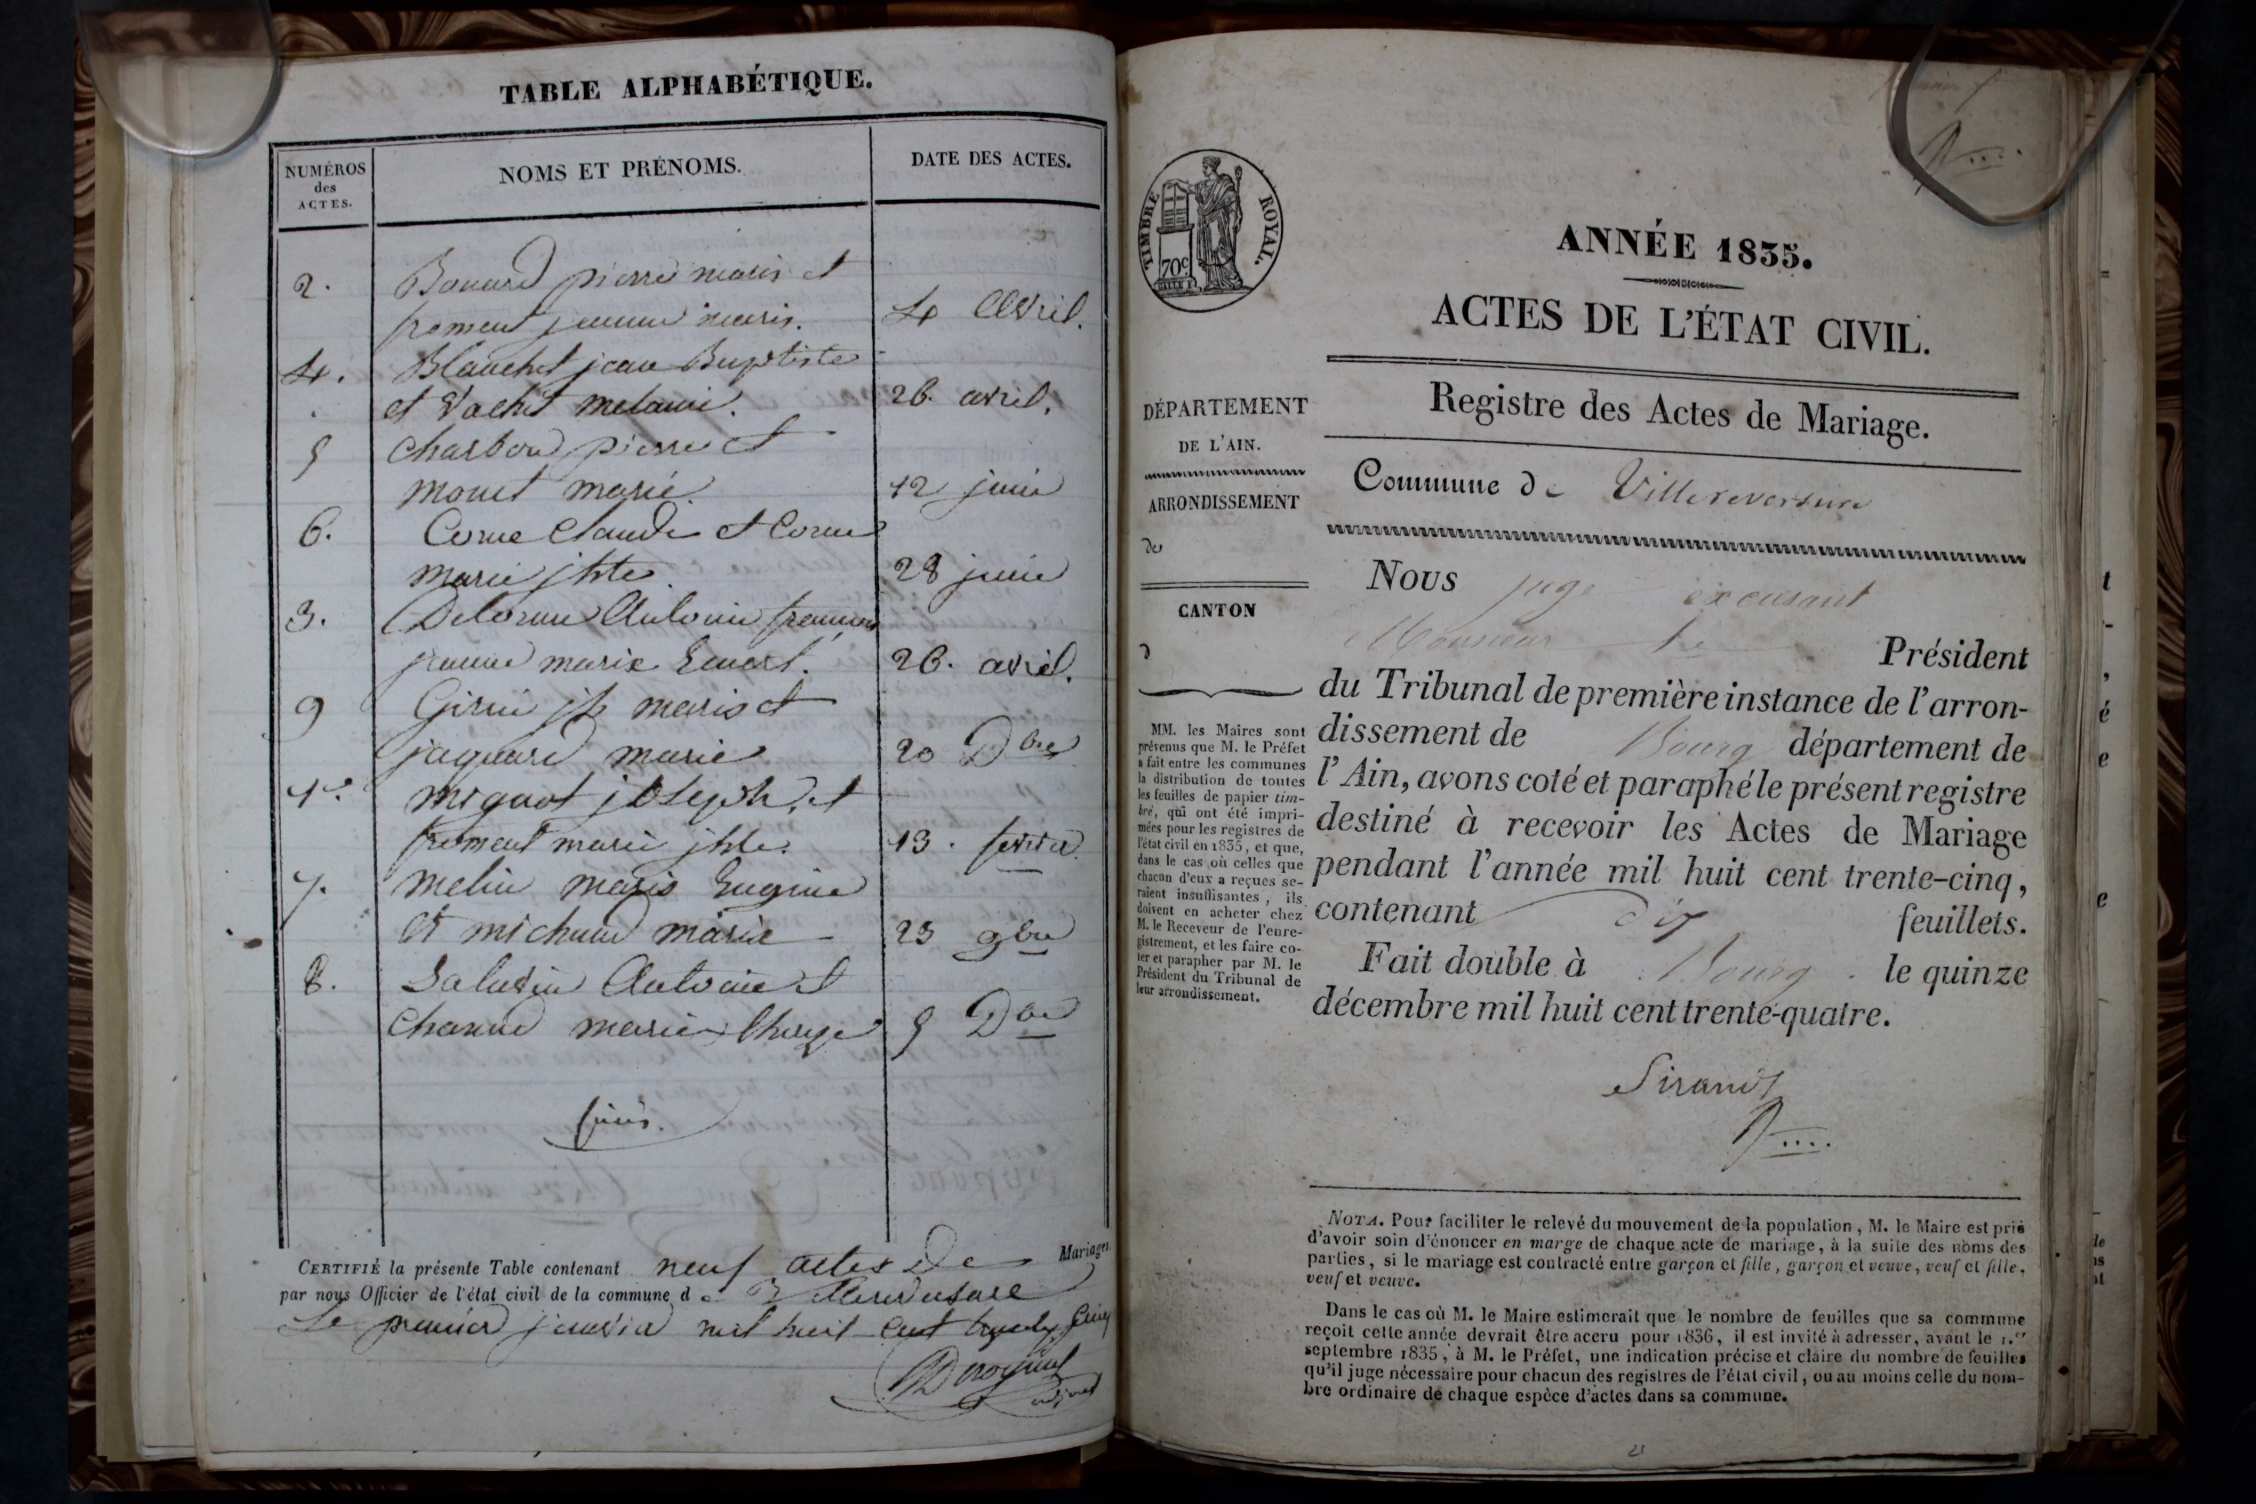 TABLE ALPHABÉTIQUE.
NUMÉROS
des
ACTES.
NOMS ET PRÉNOMS.
DATE DES ACTES.
2. Bouard pierre marie et
froment jeanne marie. 4 Avril.
4. Blanchet jean Baptiste
et Vachet melanie. 26. avril.
5 Charbon pierre et
monet marie. 12 juin
6. Corne Claude et Corne
marie jhte. 28 juin
3. Antoine
jeanne marie 26. avril.
9 Girin jh marie et
jaquard marie 20 Dbre
1er mignot joseph et
froment marie jhte. 13. fevrier
7. melin marie Eugine
et michaud marie 25 9bre
8. Saludin Antoine et
marie 5 Dbre
finis.
CERTIFIÉ la présente Table contenant neuf actes de Mariages
par nous Officier de l'état civil de la commune d e Villereversure
Le premier janvier mil huit cent
TIMBRE ROYAL.
70c
ANNÉE 1835.
ACTES DE L'ÉTAT CIVIL.
Registre des Actes de Mariage.
Commune de Villereversure
DÉPARTEMENT
DE L'AIN.
ARRONDISSEMENT
de
CANTON
d
MM. les Maires sont
prévenus que M. le Préfet
a fait entre les communes
la distribution de toutes
les feuilles de papier tim-
bré, qui ont été impri-
mées pour les registres de
l'état civil en 1835, et que,
dans le cas où celles que
chacun d'eux a reçues se-
raient insuffisantes, ils
doivent en acheter chez
M. le Receveur de l'enre-
gistrement, et les faire co-
ter et parapher par M. le
Président du Tribunal de
leur arrondissement.
Nous juge excusant
Monsieur le Président
du Tribunal de première instance de l'arron-
dissement de Bourg département de
l'Ain, avons coté et paraphé le présent registre
destiné à recevoir les Actes de Mariage
pendant l'année mil huit cent trente-cinq,
contenant dix feuillets.
Fait double à Bourg le quinze
décembre mil huit cent trente-quatre.
Sirand
NOTA. Pour faciliter le relevé du mouvement de la population, M. le Maire est prié
d'avoir soin d'énoncer en marge de chaque acte de mariage, à la suite des noms des
parties, si le mariage est contracté entre garçon et fille, garçon et veuve, veuf et fille,
veuf et veuve.
Dans le cas où M. le Maire estimerait que le nombre de feuilles que sa commune
reçoit cette année devrait être accru pour 1836, il est invité à adresser, avant le 1.er
septembre 1835, à M. le Préfet, une indication précise et claire du nombre de feuilles
qu'il juge nécessaire pour chacun des registres de l'état civil, ou au moins celle du nom-
bre ordinaire de chaque espèce d'actes dans sa commune.